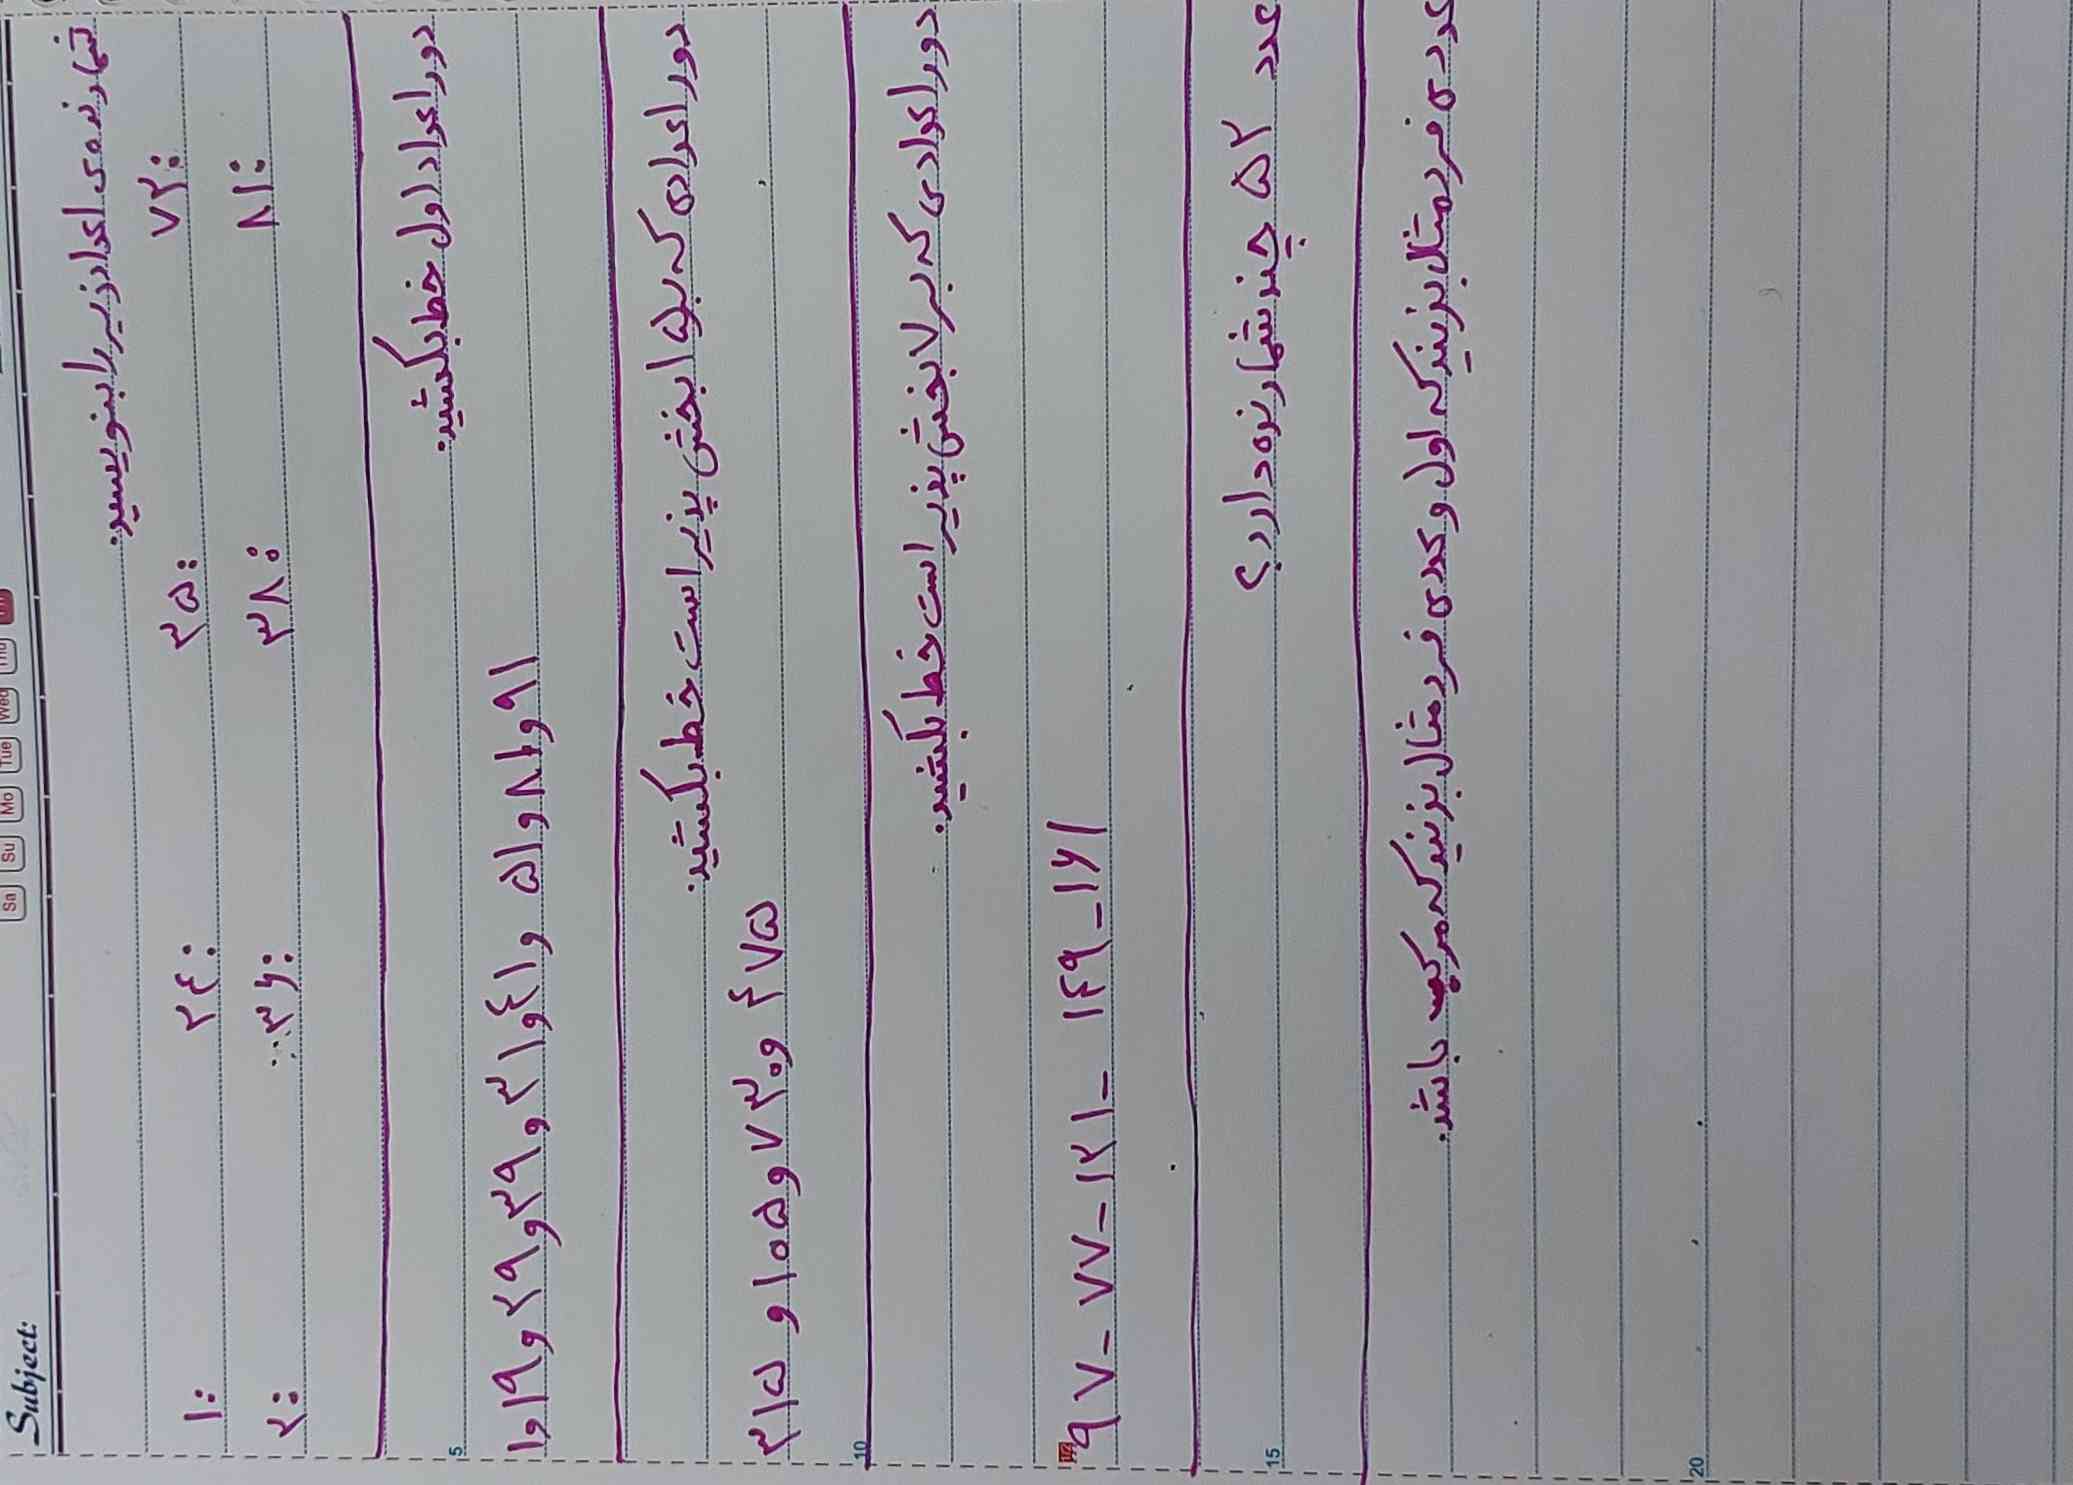 Subject:
Sa Su Mo Tue Wed Thu
شمارنده ی اعداد زیر را بنویسید.
۷۲: ۳۵: ۲٤: ۱:
۸۱: ۳۸: ۳۶: ۲:
دور اعداد اول خط بکشید.
۱ و ۱۹ و ۲۹ و ۳۹ و ۳۱ و ٤۱ و ۵۱ و ۸۱ و ۹۱
5
دور اعدادی که بر ۱۵ بخش پذیر است خط بکشید.
۳۱۵ و ۱۰۵ و ۷۳۰ و ۴۷۵
دور اعدادی که بر ۷ بخش پذیر است خط بکشید.
10
۹۷ - ۷۷ - ۱۲۱ - ۱۴۹ - ۱۶۱
عدد ۵۲ چند شمارنده دارد؟
15
عددی فرد مثال بزنید که اول و عددی فرد مثال بزنید که مرکب باشد.
20